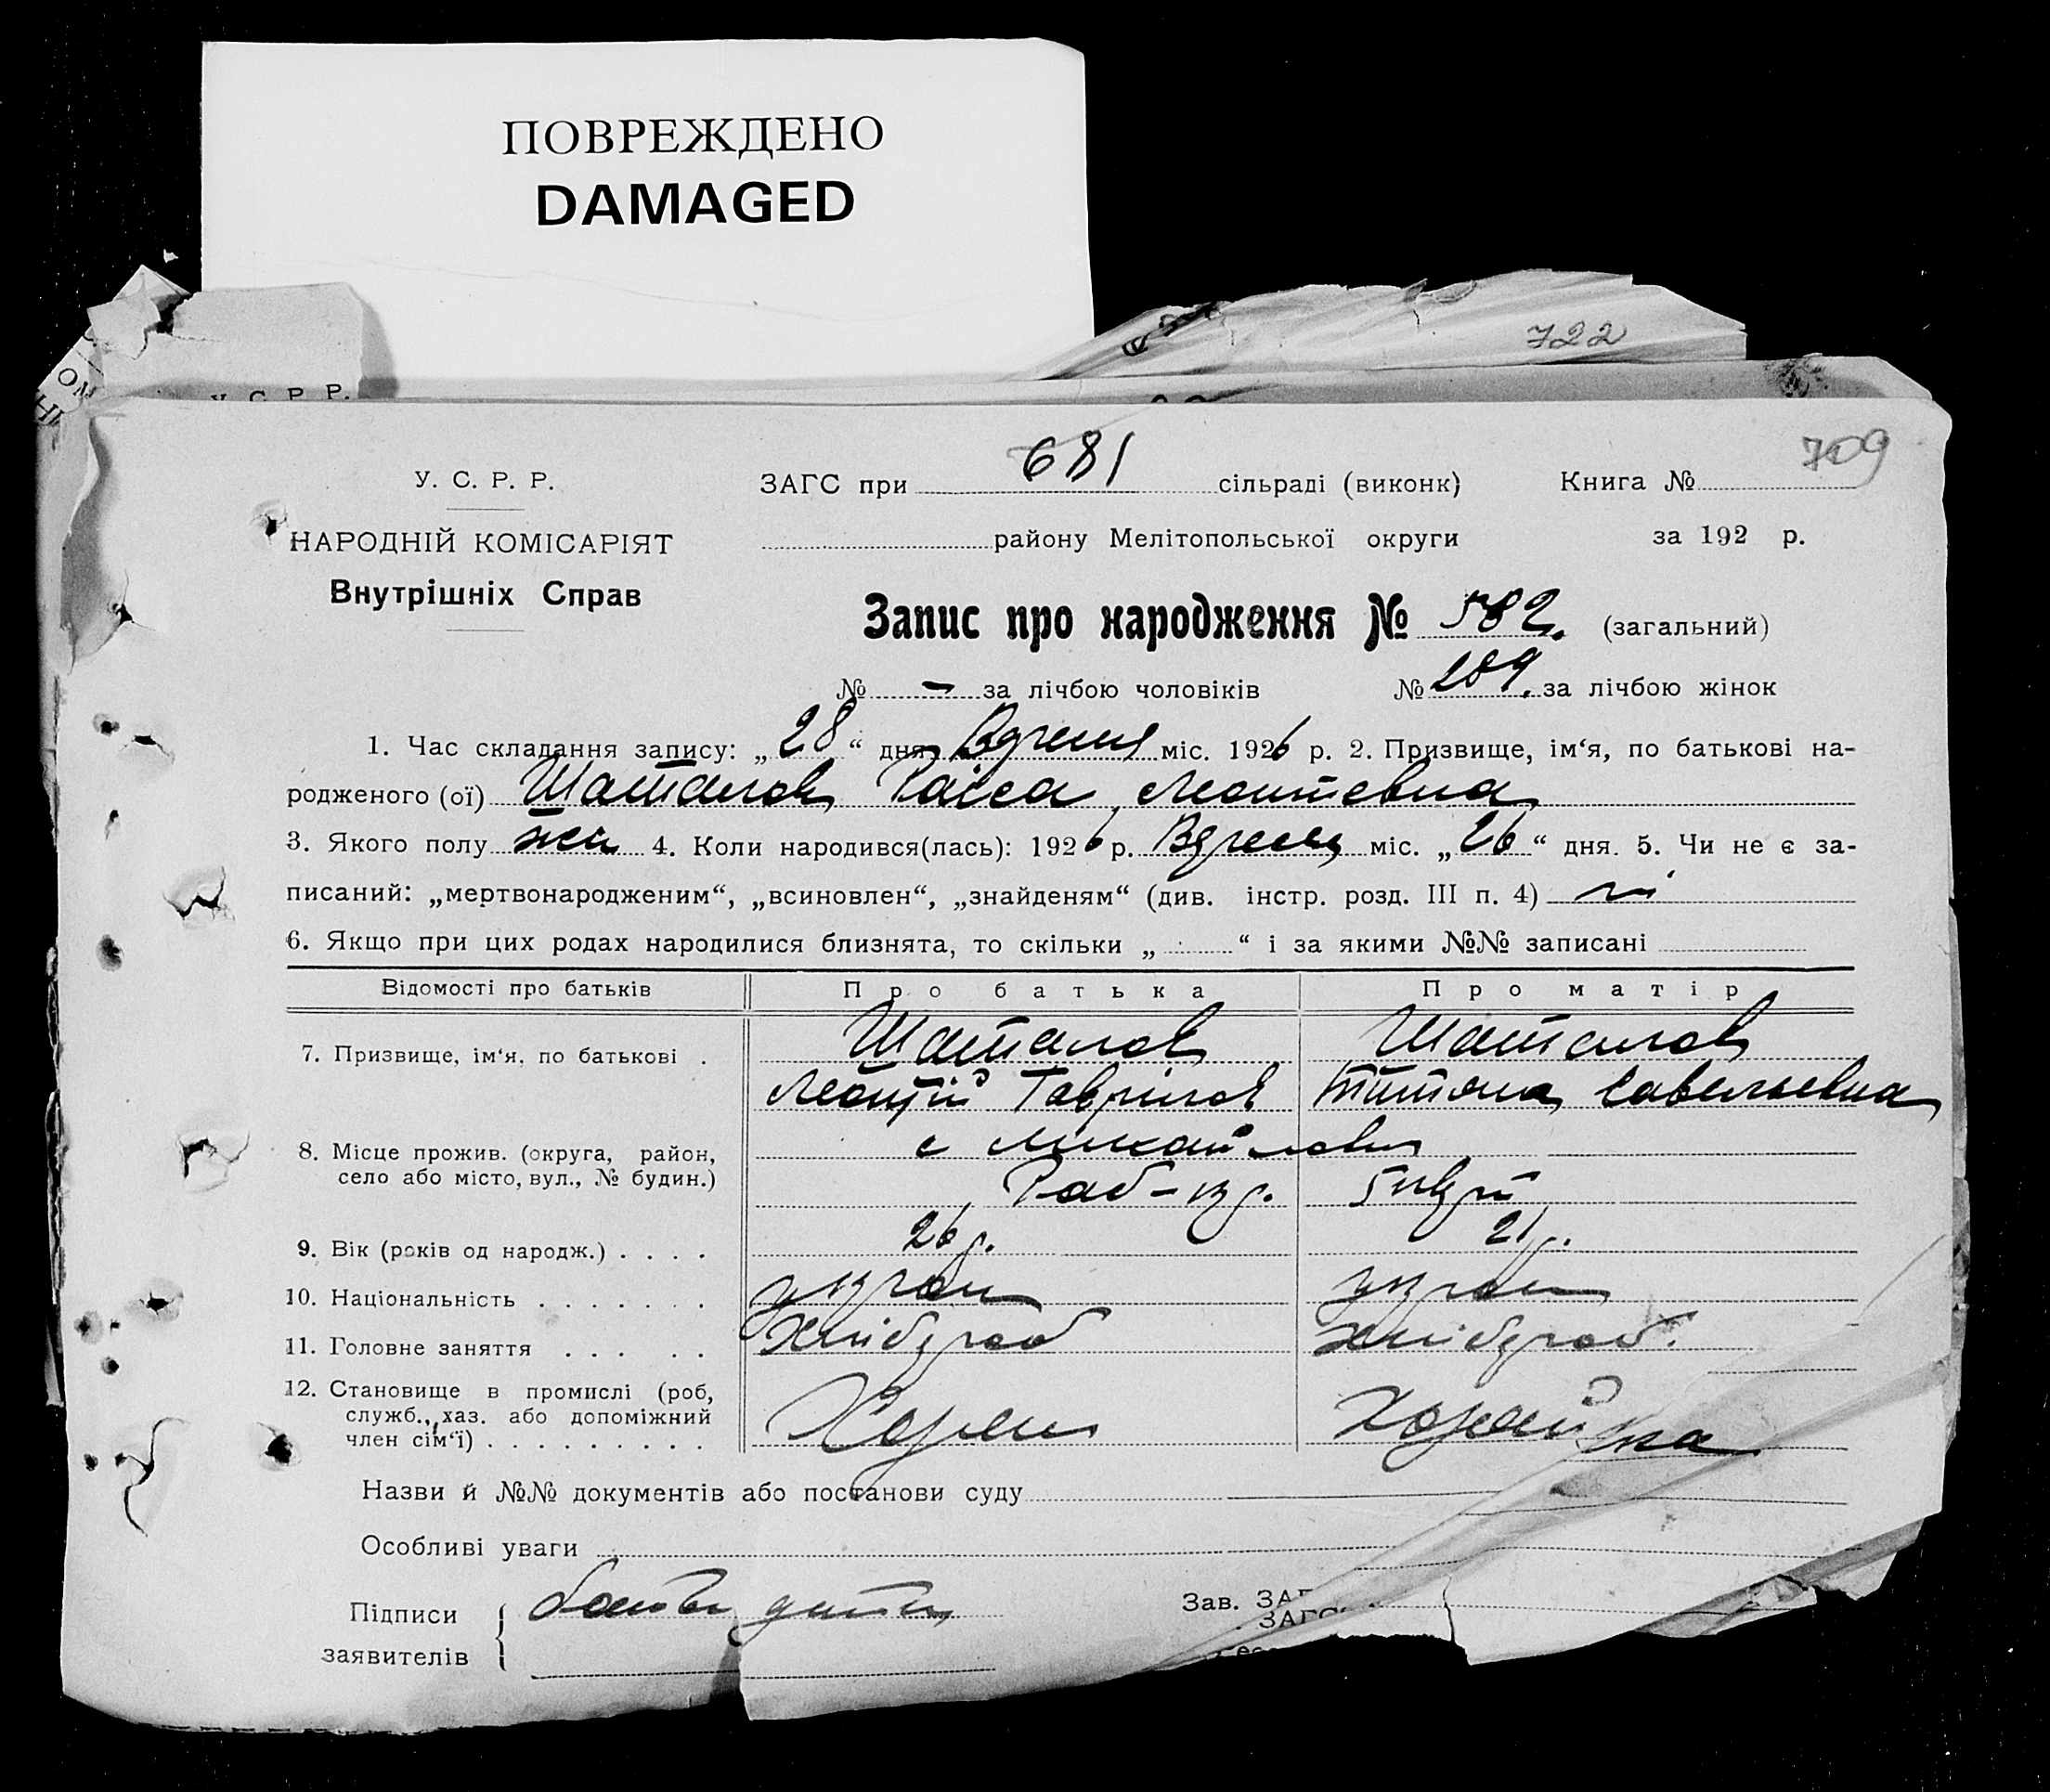 ПОВРЕЖДЕНО
DAMAGED
722
У. С. Р. Р.
709
681
У. С. Р. Р. ЗАГС при сільраді (виконк) Книга №
НАРОДНІЙ КОМІСАРІЯТ району Мелітопольської округи за 192 р.
Внутрішніх Справ
Запис про народження № 582. (загальний)
№ – за лічбою чоловіків № 289. за лічбою жінок
1. Час складання запису: „28“ дня Вдресня міс. 1926 р. 2. Призвище, ім‘я, по батькові на-
родженого (ої) Шаталов Раіса Леонтевна
3. Якого полу жін 4. Коли народився(лась): 1926 р. Вдресня міс. „26“ дня. 5. Чи не є за-
писаний: „мертвонародженим“, „всиновлен“, „знайденям“ (див. інстр. розд. III п. 4) ні
6. Якщо при цих родах народилися близнята, то скільки „ “ і за якими №№ записані
Відомості про батьків Про батька Про матір
7. Призвище, ім‘я, по батькові . Шаталов Шаталов
Леонтій Гаврілов Титяна Савельевна
8. Місце прожив. (округа, район, с
село або місто, вул., № будин.)
9. Вік (років од народж.) . . . . 26 р. 21 р.
10. Національність . . . . . . . украін украін
11. Головне заняття . . . . . Хлібороб хлібороб.
12. Становище в промислі (роб,
служб., хаз. або допоміжний Хозяин Хозяйка
член сім‘ї) . . . . . . . . .
Назви й №№ документів або постанови суду
Особливі уваги
Підписи батько дитини Зав. ЗАГ
заявителів ЗАГС